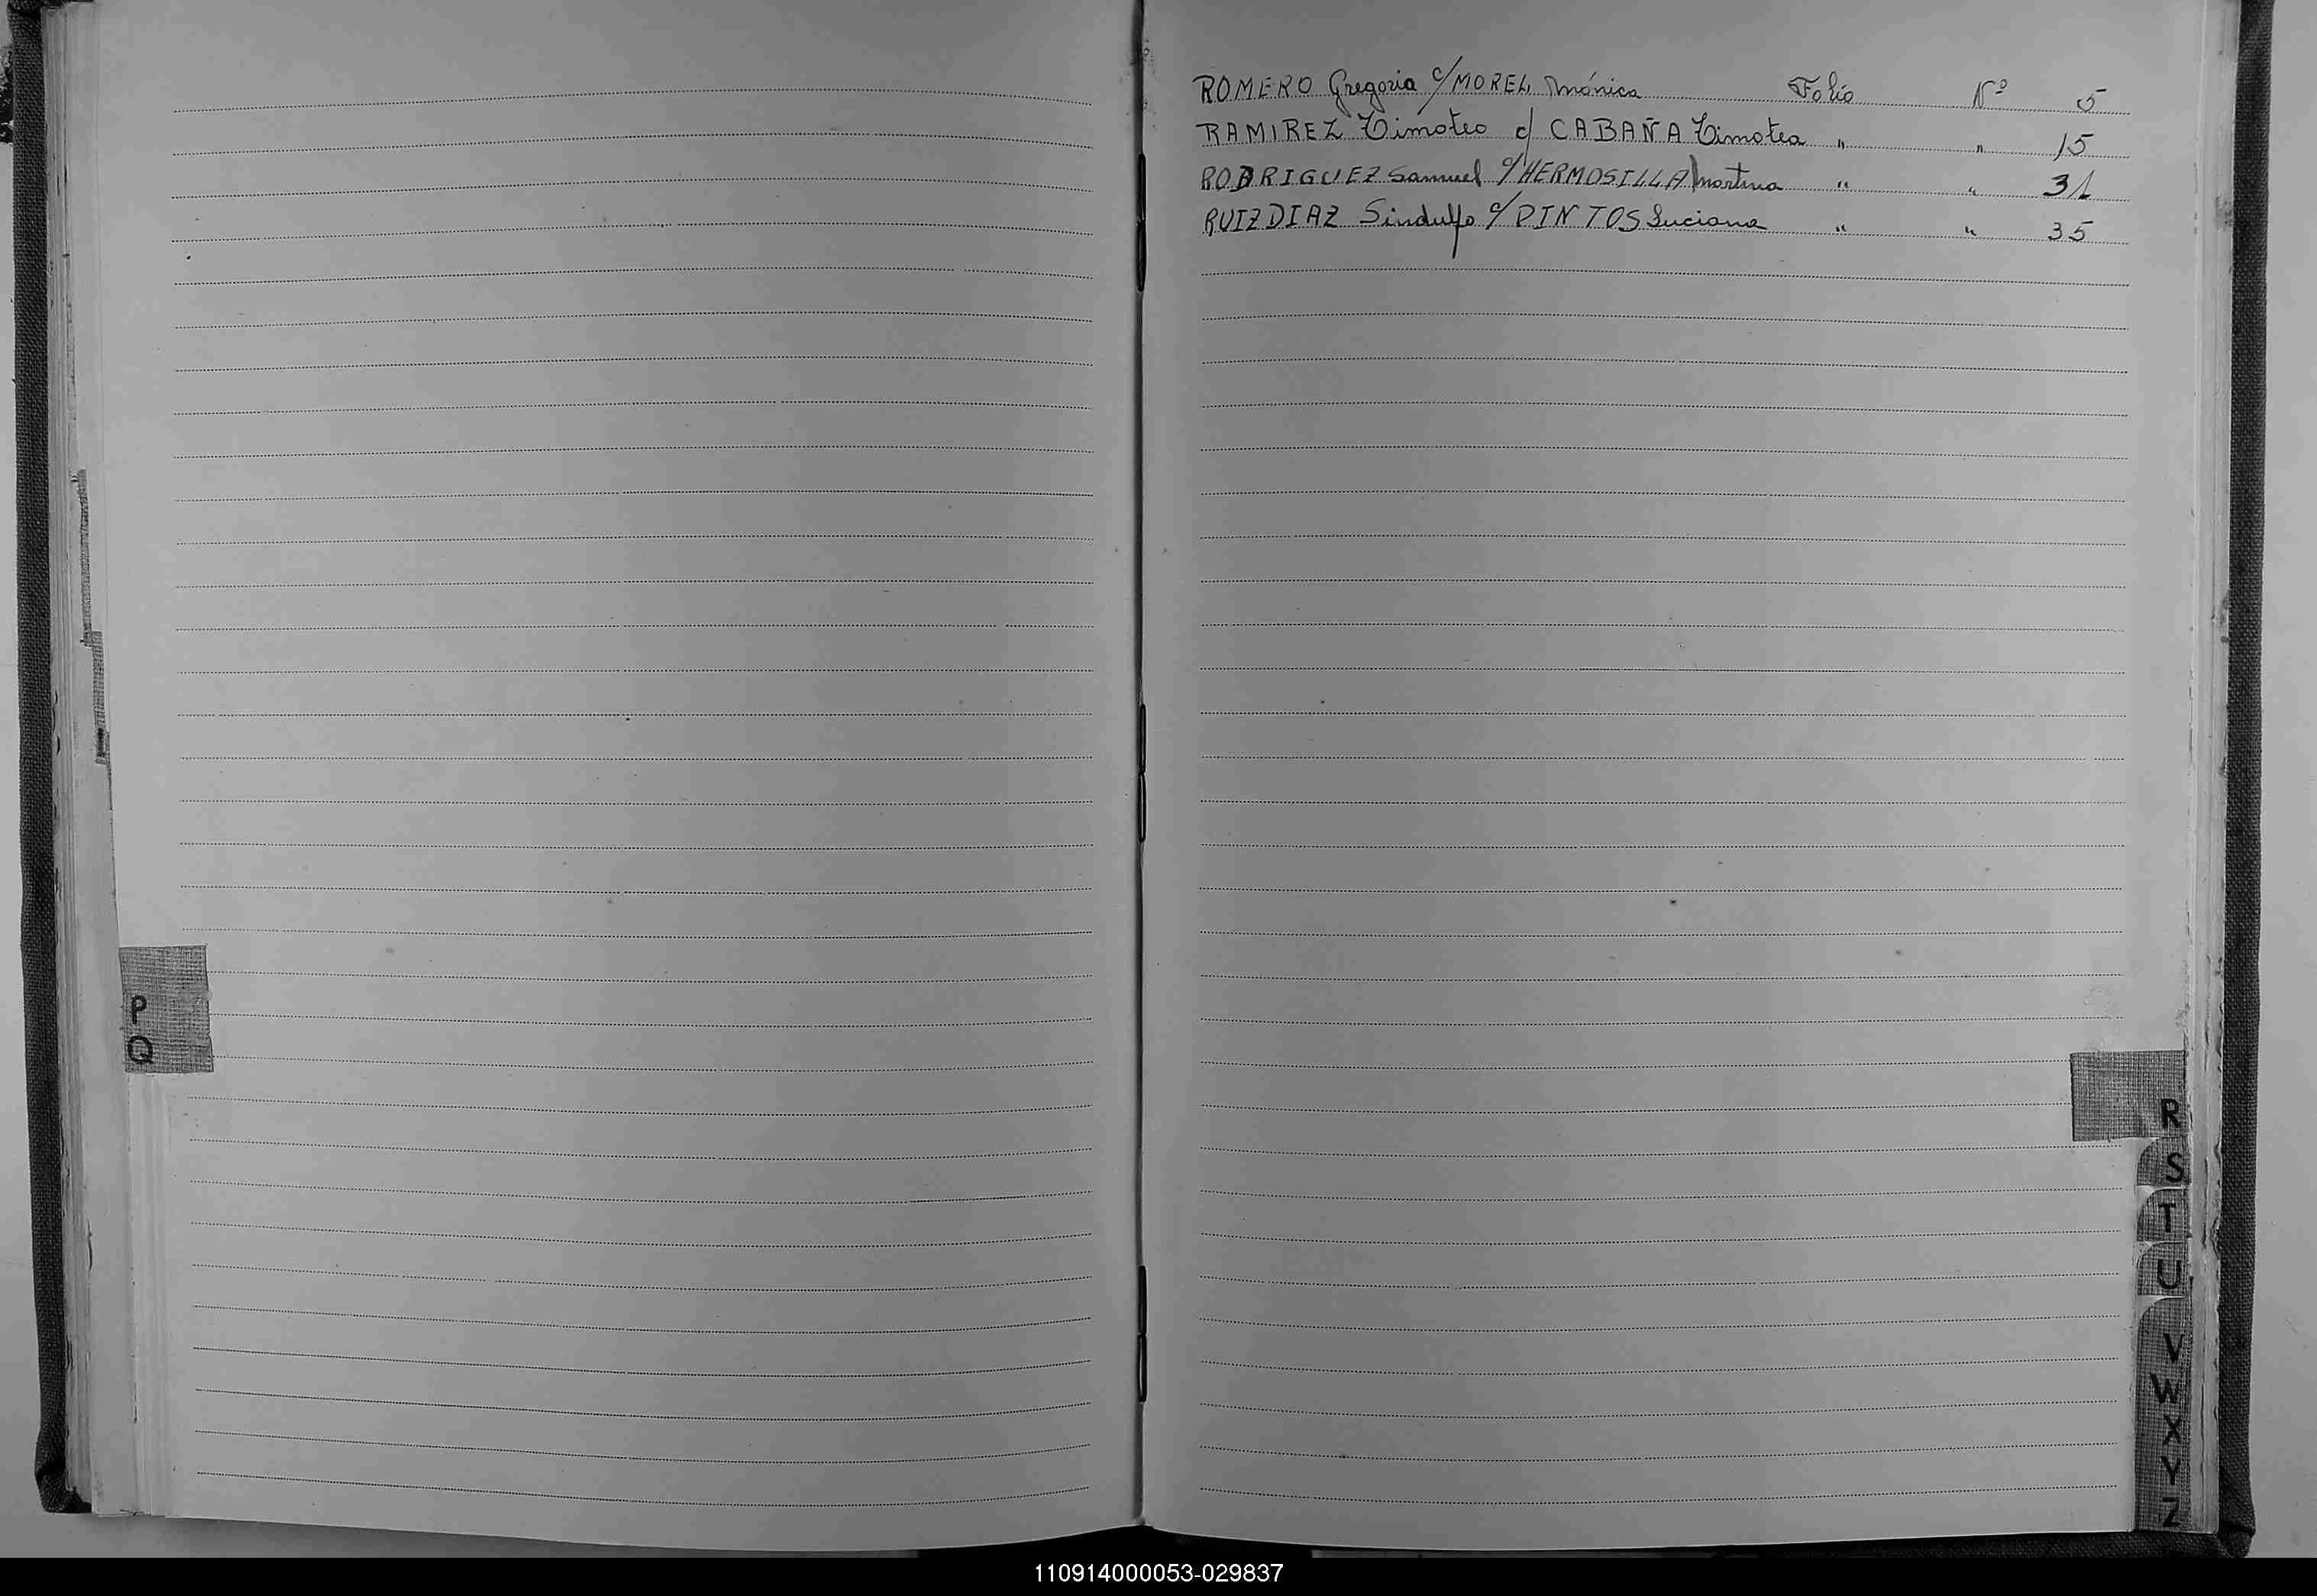 ROMERO Gregoria c/MOREL Mónica Folio Nº 5
RAMIREZ Timoteo c/ CABAÑA Timotea " " 15
RODRIGUEZ Samuel c/HERMOSILLA Martina " " 31
RUIZ DIAZ Sindulfo c/PINTOS Luciana " " 35
P
Q
R
S
T
U
V
W
X
Y
Z
110914000053-029837